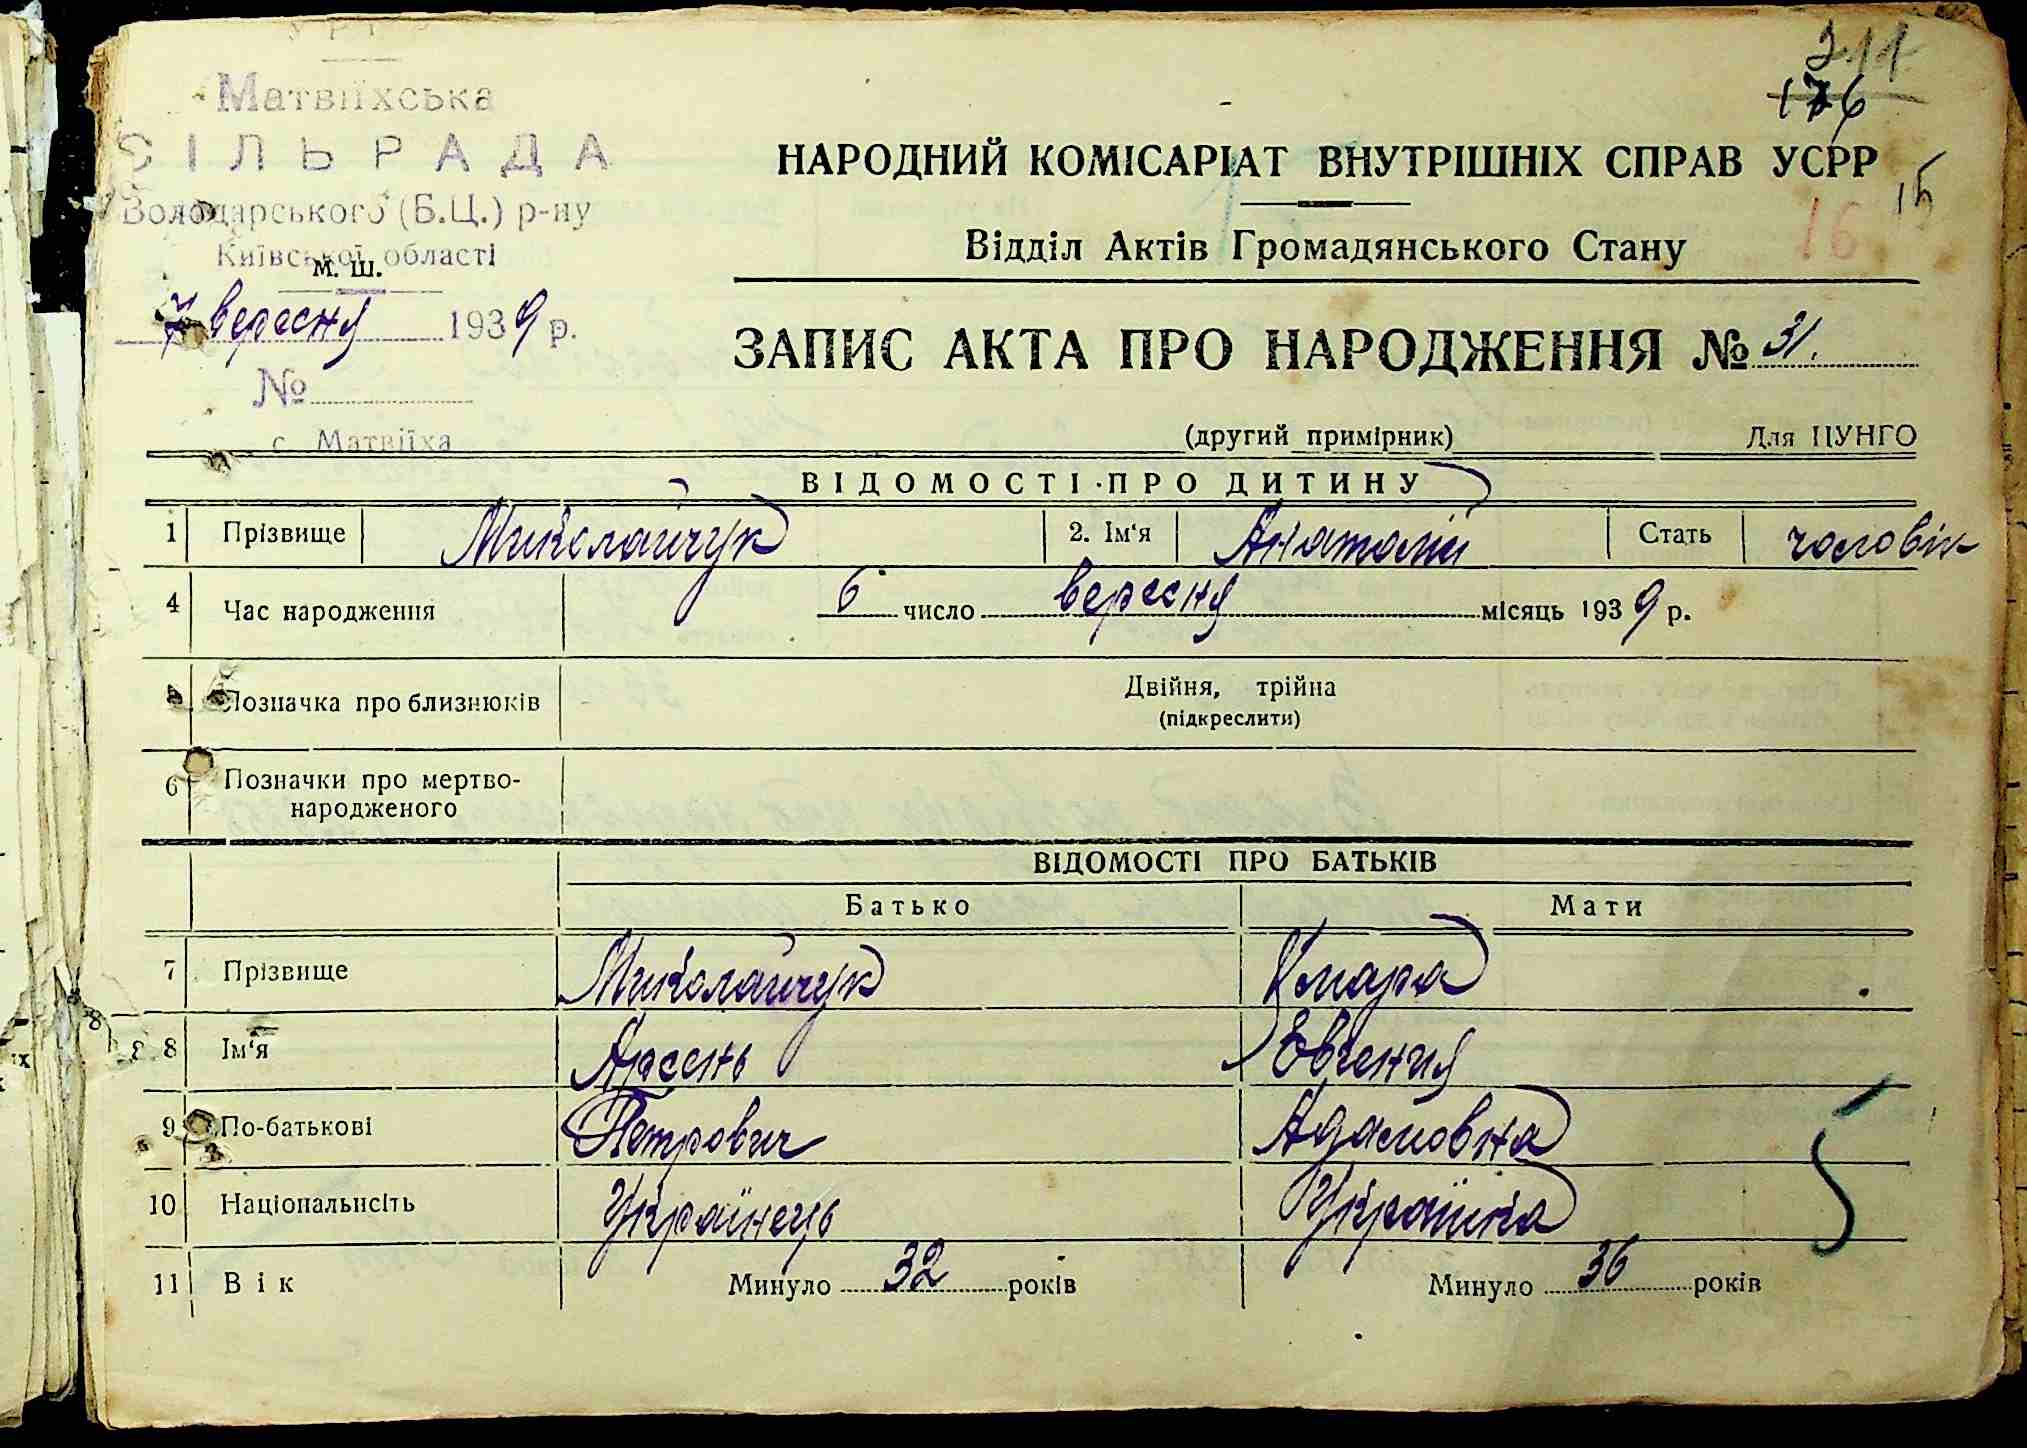 Матвіїхська
СІЛЬРАДА
Володарського (Б.Ц.) р-ну
Київської області
м. ш.
7 вересня 1939 р.
№
с. Матвіїха
311
176
15
16
НАРОДНИЙ КОМІСАРІАТ ВНУТРІШНІХ СПРАВ УСРР
Відділ Актів Громадянського Стану
ЗАПИС АКТА ПРО НАРОДЖЕННЯ № 31.
(другий примірник) Для ЦУНГО
ВІДОМОСТІ ПРО ДИТИНУ
1 Прізвище Миколайчук 2. Ім'я Анатолій Стать чоловік
4 Час народження 6 число вересня місяць 1939 р.
Позначка про близнюків Двійня, трійна
(підкреслити)
6 Позначки про мертво-
народженого
ВІДОМОСТІ ПРО БАТЬКІВ
Батько Мати
7 Прізвище Миколайчук
8 Ім'я Арсень Евгения
9 По-батькові Петрович Адамовна
10 Національність Українець Українка
11 Вік Минуло 32 років Минуло 36 років